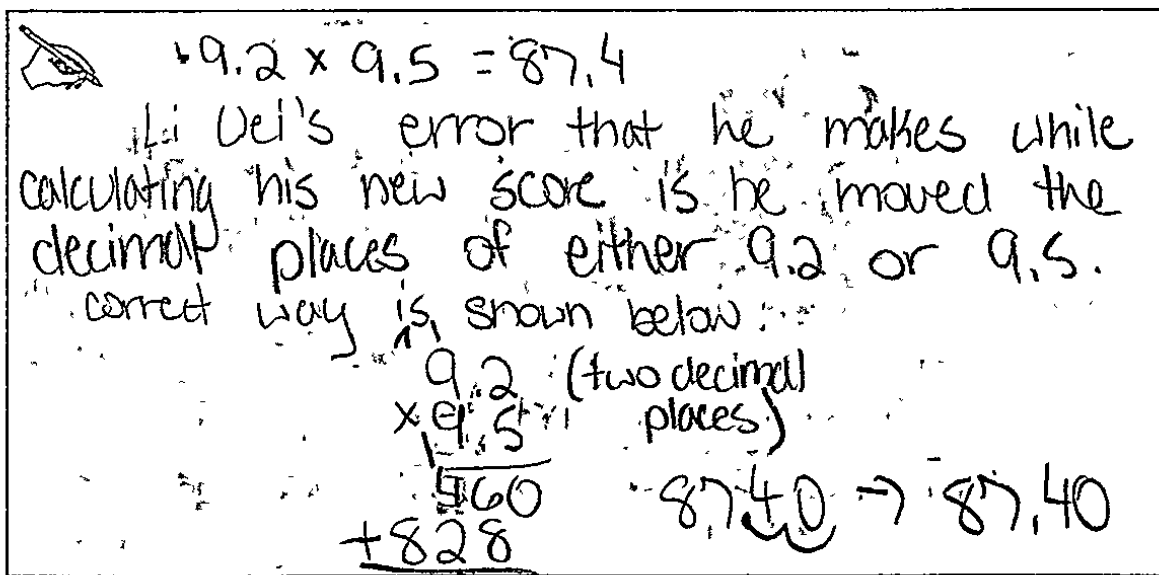 9.2 × 9.5 = 87.4
Li Wei's error that he makes while
calculating his new score is he moved the
decimal places of either 9.2 or 9.5.
correct way is shown below.
9.2 (two decimal
× 9.5 places)
460 8740 → 87.40
+828